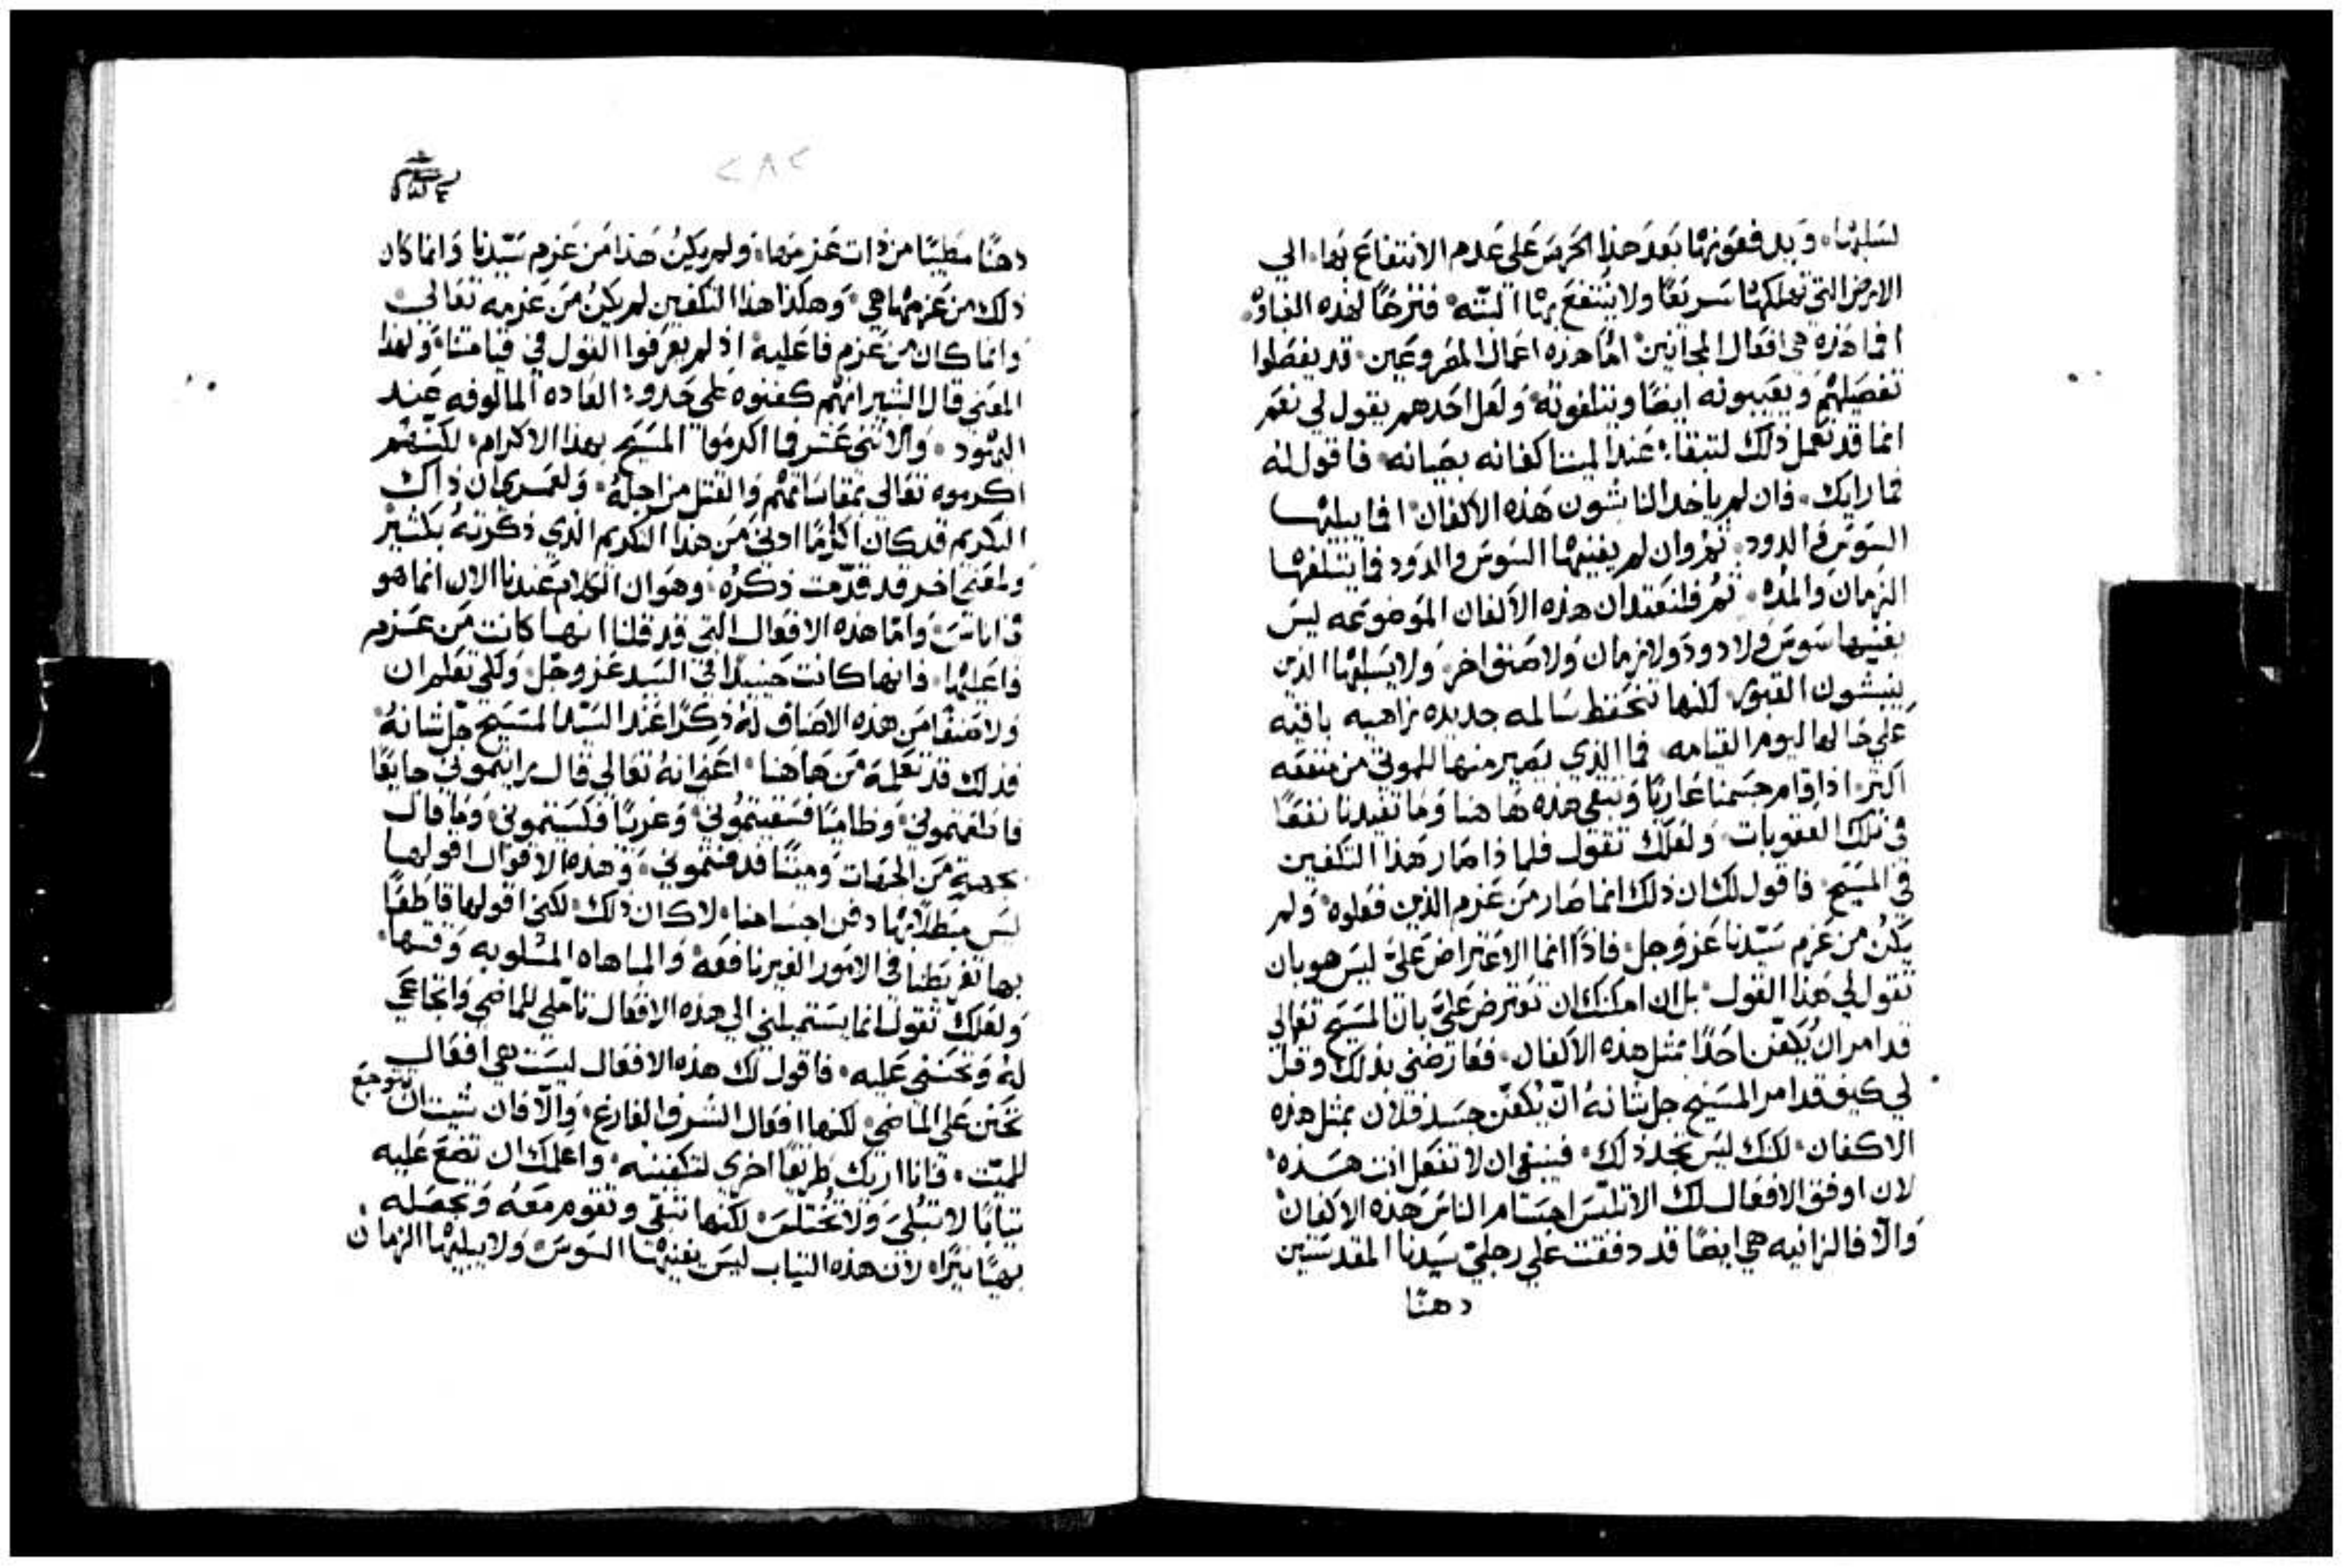 لسلبها. ويدفعونها بعد هذا الحرص على عدم الانتفاع بها. الي
الارض التي تهلكها سريعًا ولا ينتفع بها البته. فنزحًا لهذه الغباوه.
افما هذه هي افعال المجانين. اما هذه اعمال المصروعين. قد يفصلوا
تفصيلهم ويعيبونه ايضًا ويتلفونه. ولعل احدهم يقول لي نعم
انما قد نعمل ذلك لتبقاء عند الميت اكفانه بصيانه. فاقول له
فما رايك. فان لم ياخد النابشون هذه الاكفان. افما يبليها
السوس والدود. نعم وان لم يفنيها السوس والدود فما يتلفها
الزمان والمده. ثم فلنعتد ان هذه الاكفان الموضوعه ليس
يفنيها سوس ولا دود ولا زمان ولا صنف اخر. ولا يسلبها الذين
ينبشون القبور. لكنها تحفظ سالمه جديده زاهيه باقيه
علي حالها ليوم القيامه. فما الذي يصير منها للموتي من منفعه
اكثر. اذا قام جسمنا عاريًا وتبقي هذه ها هنا وما تفيدنا نفعًا
في تلك العقوبات. ولعلك تقول فلماذا صار هذا التكفين
في المسيح. فاقول لك ان ذلك انما صار من عزم الذين فعلوه. ولم
يكن من عزم سيدنا عز وجل. فاذًا انما الاعتراض علي ليس هو بان
تقول لي هذا القول. بل ان امكنك ان تعترض علي بان المسيح تعالي
قد امر ان يكفن احدًا بمثل هذه الاكفان. فعارضني بذلك وقل
لي كيف قد امر المسيح جل شانه ان يكفن جسد فلان بمثل هذه
الاكفان. لكنك ليس تجد ذلك. فينبغي ان لا تفعل انت هذه
لان اوفق الافعال لك الا تلبس اجسام الناس هذه الاكفان
والّا فالزانيه هي ايضًا قد دفقت علي رجلي سيدنا المقدستين
دهنًا
٢٨٢
دهنًا مطيبًا من ذات عزمها. ولم يكن هذا من عزم سيدنا وانما كان
ذلك من عزمها هي. وهكذا هذا التكفين لم يكن من عزمه تعالي
وانما كان من عزم فاعليه. اذ لم يعرفوا القول في قيامتنا. ولهذا
المعني قال البشير انهم كفنوه علي حدود العاده المالوفه عند
اليهود. والاثني عشر فما اكرموا المسيح بهذا الاكرام. لكنهم
اكرموه تعالي بمقاساتهم والقتل من اجله. ولعمري ان ذاك
التكريم قد كان اكرامًا ادني من هذا التكريم الذي ذكرته بكثير
ولمعني اخر قد قدّمت ذكره. وهو ان الكلام عندنا الان انما هو
في اناس. واما هذه الافعال التي قد قلنا انها كانت من عزم
فاعليها. فانها كانت حينيذًا في السيد عز وجل. ولكي تعلم ان
ولا صنفًا من هذه الاصناف له ذكرًا عند السيد المسيح جل شانه
فذلك قد تعلمه من هاهنا. اعني انه تعالي قال رايتموني جايعًا
فاطعمتموني. وظاميًا فسقيتموني. وعريًا فكسيتموني. وما قال
بجهة من الجهات وميتًا فدفنتموني. وهذه الاقوال اقولها
ليس مبطلًا بها دفن اجسامنا. لا كان ذلك. لكني اقولها قاطعًا
بها تفريطنا في الامور الغير نافعه. والمباهاه المسلوبه وقتها
ولعلك تقول انما يستميلني الي هذه الافعال تاملي للماضي وانجاعي
له وتحسفي عليه. فاقول لك هذه الافعال ليست هي افعال
تحنن علي الماضي. لكنها افعال الشرف الفارغ. والّا فان شيت ان تتوجع
للميّت. فانا اريك طريقًا اخري لتكفينه. واعلمك ان تضع عليه
ثيابًا لا تبلي ولا تختلس. لكنها تبقي وتقوم معه وتجعله
بهيًا نيرًا. لان هذه الثياب ليس يفنيها السوس. ولا يبليها الزمان